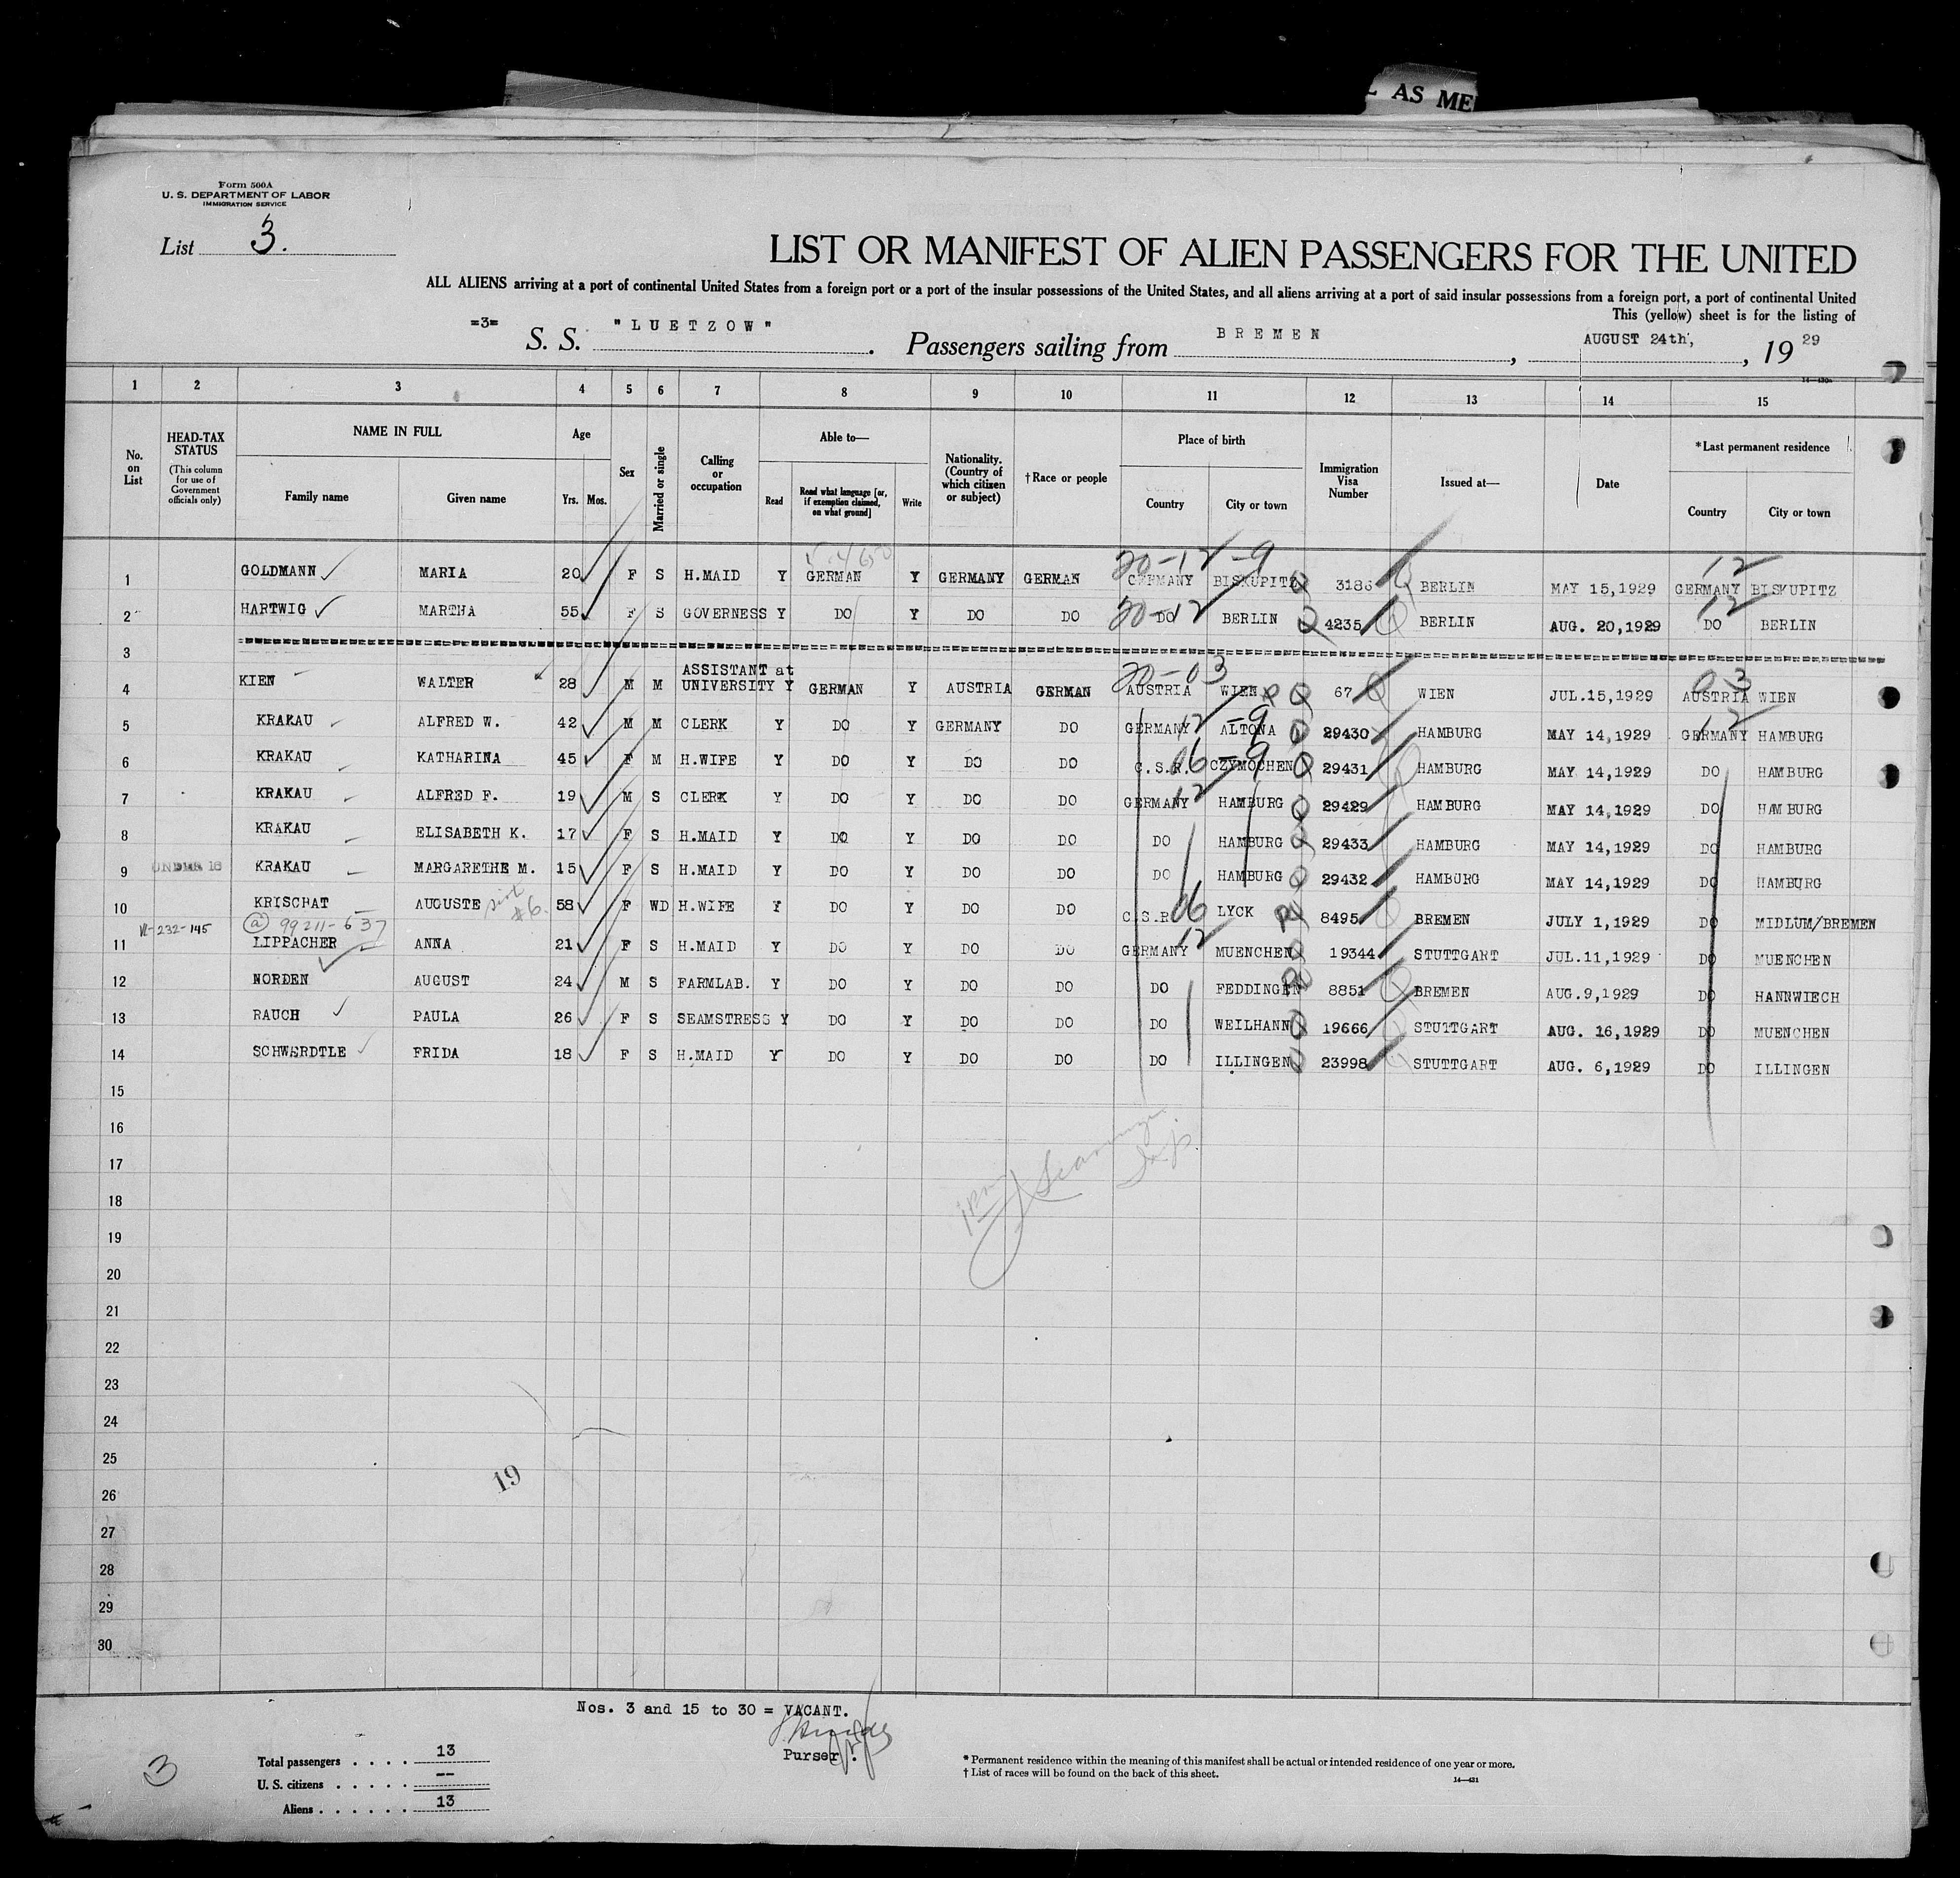 L AS ME
Form 500A
U. S. DEPARTMENT OF LABOR
IMMIGRATION SERVICE
List 3.
LIST OR MANIFEST OF ALIEN PASSENGERS FOR THE UNITED
ALL ALIENS arriving at a port of continental United States from a foreign port or a port of the insular possessions of the United States, and all aliens arriving at a port of said insular possessions from a foreign port, a port of continental United
This (yellow) sheet is for the listing of
=3= S. S. "LUETZOW" . Passengers sailing from BREMEN , AUGUST 24th, , 19 29
14—430a
1 2 3 4 5 6 7 8 9 10 11 12 13 14 15
No. on List
HEAD-TAX STATUS (This column for use of Government officials only)
NAME IN FULL
Family name Given name
Age
Yrs. Mos.
Sex
Married or single
Calling or occupation
Able to—
Read Read what language [or, if exemption claimed, on what ground] Write
Nationality. (Country of which citizen or subject)
† Race or people
Place of birth
Country City or town
Immigration Visa Number
Issued at—
Date
* Last permanent residence
Country City or town
20-12 -9 12
1 GOLDMANN MARIA 20 F S H.MAID Y GERMAN Y GERMANY GERMAN GERMANY BISKUPITZ 3186 BERLIN MAY 15,1929 GERMANY BISKUPITZ
20-12 12
2 HARTWIG MARTHA 55 F S GOVERNESS Y DO Y DO DO DO BERLIN 4235 BERLIN AUG. 20,1929 DO BERLIN
3
20-03 03
4 KIEN WALTER 28 M M ASSISTANT at UNIVERSITY Y GERMAN Y AUSTRIA GERMAN AUSTRIA WIEN 67 WIEN JUL.15,1929 AUSTRIA WIEN
12 -9 12
5 KRAKAU ALFRED W. 42 M M CLERK Y DO Y GERMANY DO GERMANY ALTONA 29430 HAMBURG MAY 14,1929 GERMANY HAMBURG
06 -9
6 KRAKAU KATHARINA 45 F M H.WIFE Y DO Y DO DO C.S.R. CZYMOCHEN 29431 HAMBURG MAY 14,1929 DO HAMBURG
12
7 KRAKAU ALFRED F. 19 M S CLERK Y DO Y DO DO GERMANY HAMBURG 29429 HAMBURG MAY 14,1929 DO HAMBURG
8 KRAKAU ELISABETH K. 17 F S H.MAID Y DO Y DO DO DO HAMBURG 29433 HAMBURG MAY 14,1929 DO HAMBURG
9 UNDER 16 KRAKAU MARGARETHE M. 15 F S H.MAID Y DO Y DO DO DO HAMBURG 29432 HAMBURG MAY 14,1929 DO HAMBURG
#6. 06
10 KRISCHAT AUGUSTE 58 F WD H.WIFE Y DO Y DO DO C.S.R. LYCK 8495 BREMEN JULY 1,1929 DO MIDLUM/BREMEN
VL-232-145 @ 99211-637 12
11 LIPPACHER ANNA 21 F S H.MAID Y DO Y DO DO GERMANY MUENCHEN 19344 STUTTGART JUL.11,1929 DO MUENCHEN
12 NORDEN AUGUST 24 M S FARMLAB. Y DO Y DO DO DO FEDDINGEN 8851 BREMEN AUG.9,1929 DO HANNWIECH
13 RAUCH PAULA 26 F S SEAMSTRESS Y DO Y DO DO DO WEILHANN 19666 STUTTGART AUG. 16,1929 DO MUENCHEN
14 SCHWERDTLE FRIDA 18 F S H.MAID Y DO Y DO DO DO ILLINGEN 23998 STUTTGART AUG. 6,1929 DO ILLINGEN
15
16
17
18
19
20
21
22
23
24
25
19
26
27
28
29
30
Nos. 3 and 15 to 30 = VACANT.
Purser.
3
Total passengers . . . . 13
U. S. citizens . . . . . --
Aliens . . . . . . 13
* Permanent residence within the meaning of this manifest shall be actual or intended residence of one year or more.
† List of races will be found on the back of this sheet.
14—431